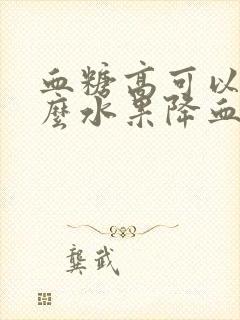 血糖高可以
麼水果降血
龔武